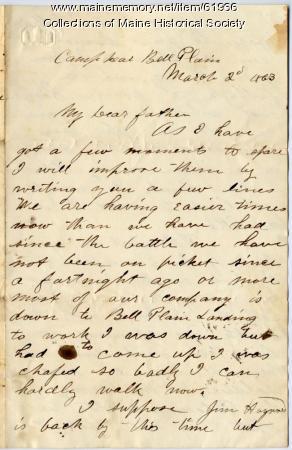 www.mainememory.net/item/61936
Collections of Maine Historical Society
Camp near Bell Plain
March 2d 1863
My Dear father
As I have
got a few moments to spare
I will improve them by
writing you a few lines
We are having Easier times
now than we have had
since the battle we have
not been on picket since
a fortnight ago or more
most of our company is
down to Bell Plain Landing
to work I was down but
had to come up I was
chafed so badly I can
hardly walk now.
I suppose Jim
is back by this time but